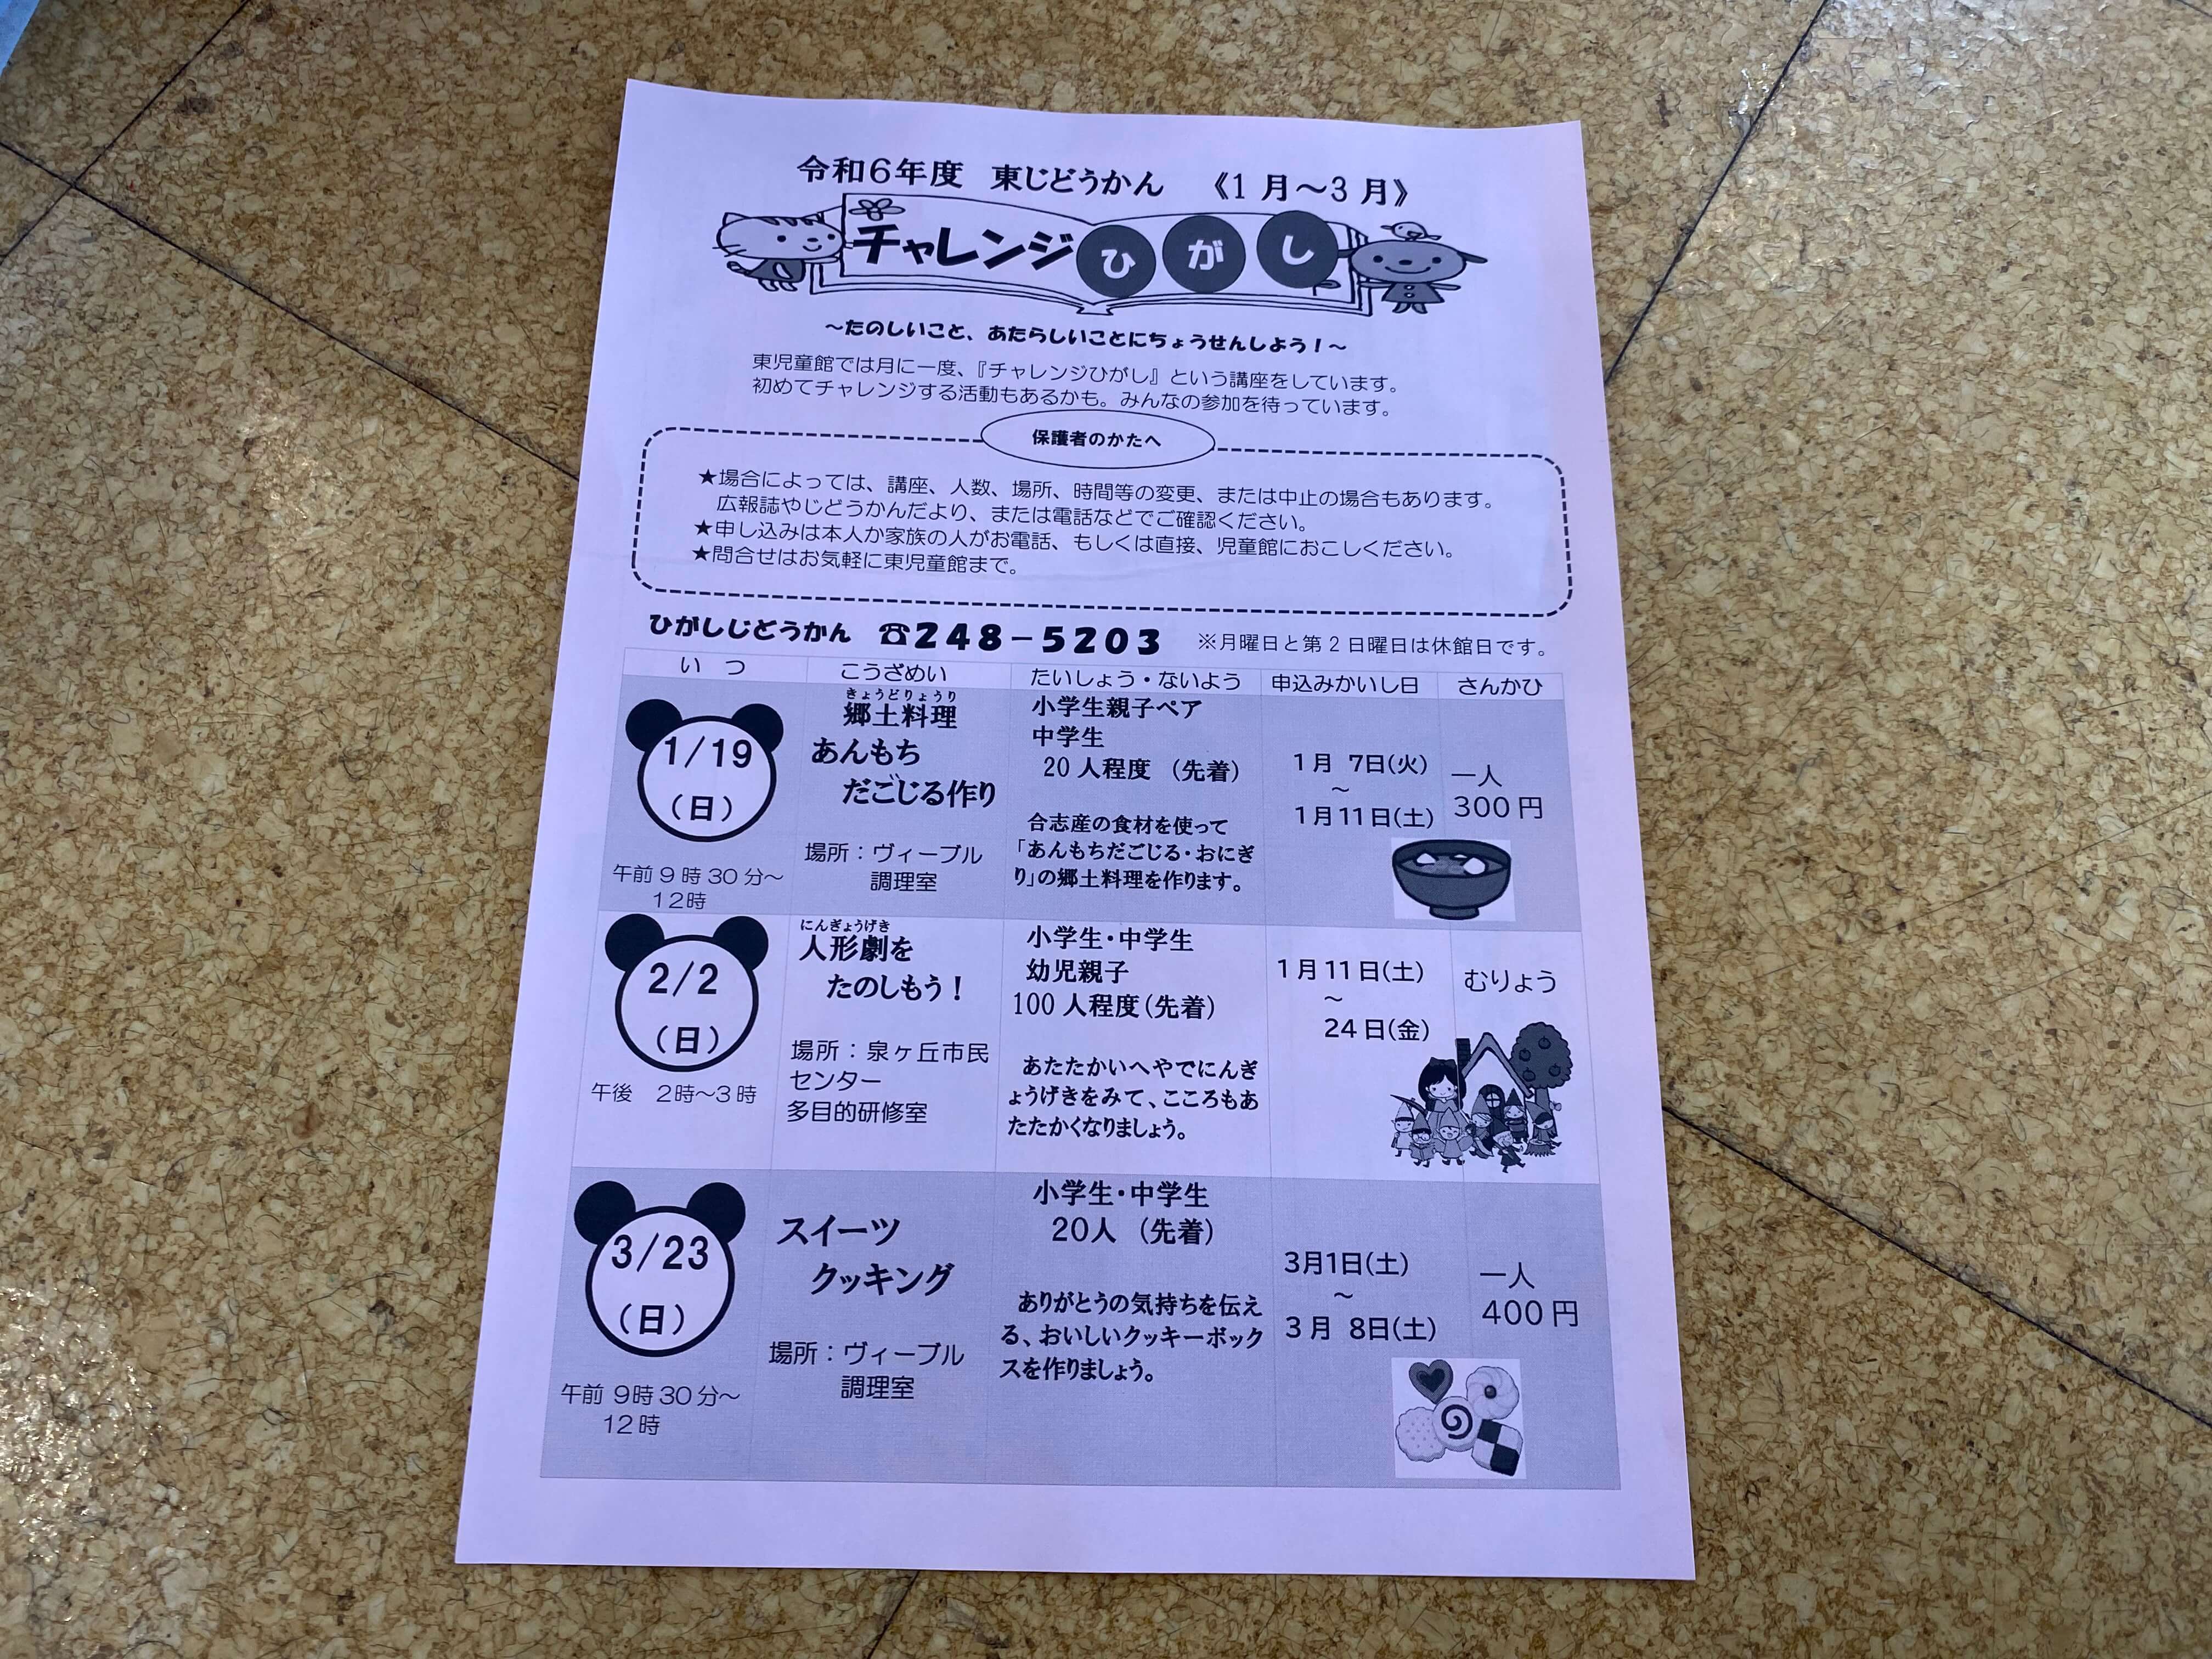 令和6年度 東じどうかん 《1月～3月》
チャレンジひがし
～たのしいこと、あたらしいことにちょうせんしよう！～
東児童館では月に一度、『チャレンジひがし』という講座をしています。
初めてチャレンジする活動もあるかも。みんなの参加を待っています。
保護者のかたへ
★場合によっては、講座、人数、場所、時間等の変更、または中止の場合もあります。
広報誌やじどうかんだより、または電話などでご確認ください。
★申し込みは本人か家族の人がお電話、もしくは直接、児童館におこしください。
★問合せはお気軽に東児童館まで。
ひがしじどうかん ☎248－5203 ※月曜日と第2日曜日は休館日です。
いつ こうざめい たいしょう・ないよう 申込みかいし日 さんかひ
1/19
（日）
午前9時30分～
12時
きょうどりょうり
郷土料理
あんもち
だごじる作り
場所：ヴィーブル
調理室
小学生親子ペア
中学生
20人程度（先着）
合志産の食材を使って
「あんもちだごじる・おにぎ
り」の郷土料理を作ります。
1月 7日(火)
～
1月11日(土)
一人
300円
2/2
（日）
午後 2時～3時
にんぎょうげき
人形劇を
たのしもう！
場所：泉ヶ丘市民
センター
多目的研修室
小学生・中学生
幼児親子
100人程度(先着)
あたたかいへやでにんぎ
ょうげきをみて、こころもあ
たたかくなりましょう。
1月11日(土)
～
24日(金)
むりょう
3/23
（日）
午前 9時30分～
12時
スイーツ
クッキング
場所：ヴィーブル
調理室
小学生・中学生
20人（先着）
ありがとうの気持ちを伝え
る、おいしいクッキーボック
スを作りましょう。
3月1日(土)
～
3月 8日(土)
一人
400円